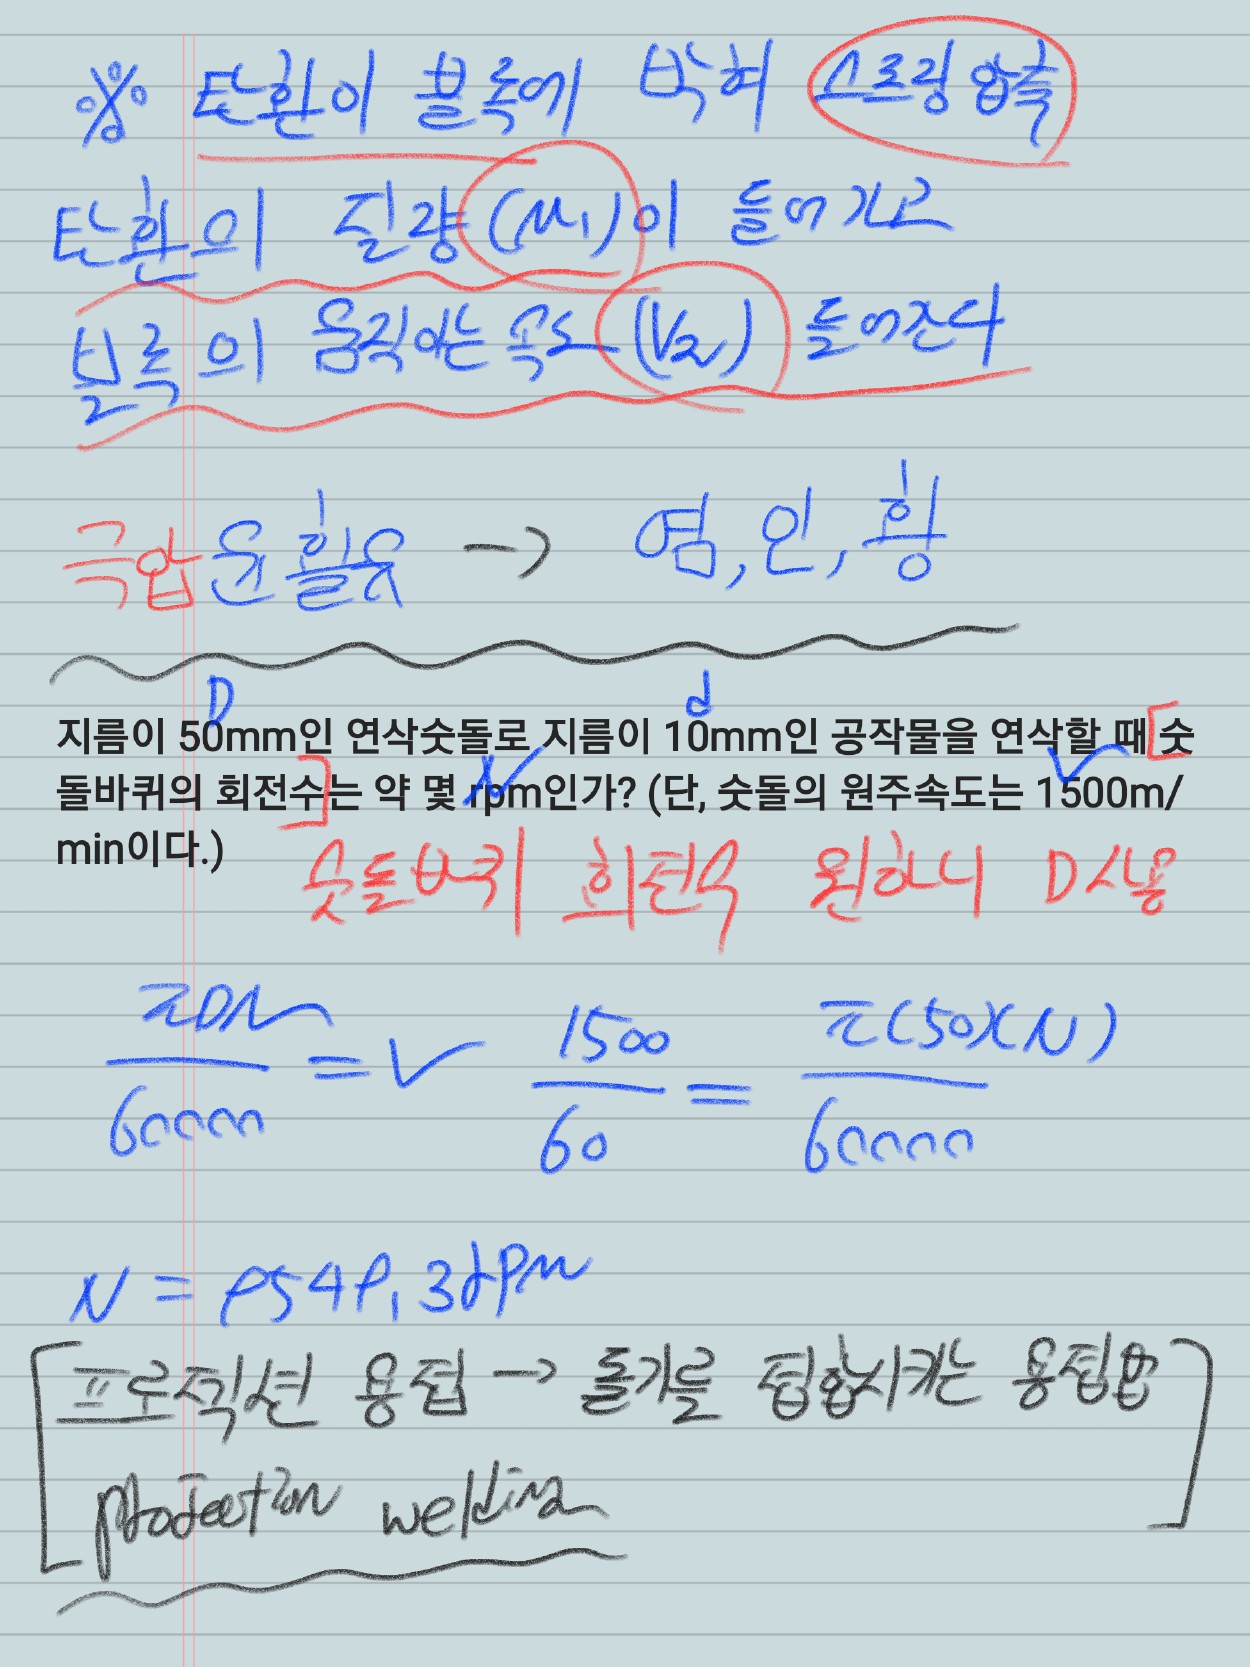 ※ 탄환이 블록에 박혀 스프링 압축
탄환의 질량 (M₁)이 들어가고
블록의 움직이는 속도 (V₂) 들어간다
극압윤활유 → 염, 인, 황
D d
지름이 50mm인 연삭숫돌로 지름이 10mm인 공작물을 연삭할 때 숫
돌바퀴의 회전수는 약 몇 rpm인가? (단, 숫돌의 원주속도는 1500m/
min이다.)
N V
숫돌바퀴 회전수 원하니 D사용
πDN/60000 = V 1500/60 = π(50)(N)/60000
N = 9549.3rpm
프로젝션 용접 → 돌기를 접합시키는 용접법
projection welding